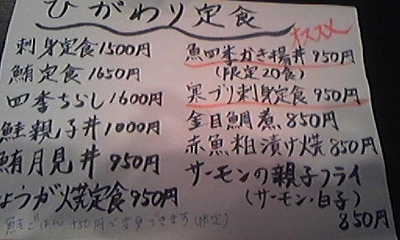 ひがわり定食
オススメ
刺身定食1500円
鮪定食1650円
四季ちらし1600円
鮭親子丼1000円
鮪月見丼950円
しょうが焼定食950円
魚四季かき揚丼950円
(限定20食)
寒ブリ刺身定食950円
金目鯛煮850円
赤魚粕漬け焼850円
サーモンの親子フライ
(サーモン・白子)
850円
ごはん +50円で変更できます(限定)